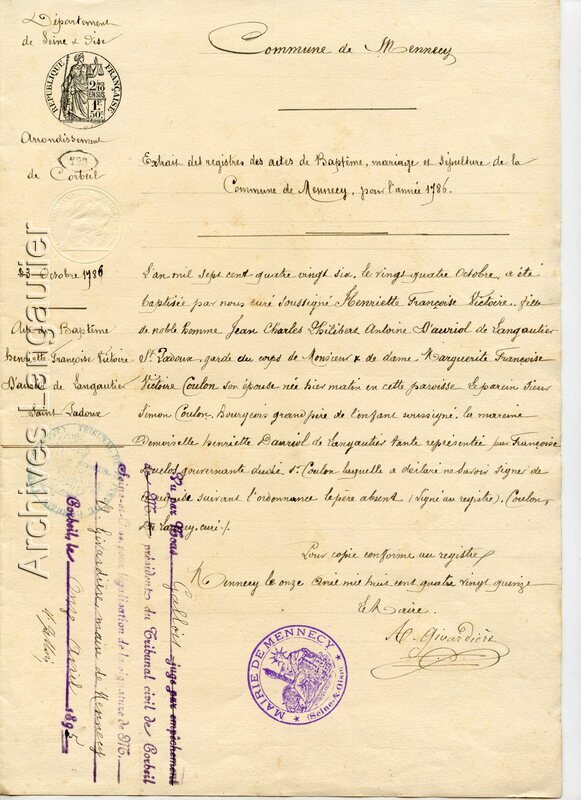 Département
de Seine & Oise
RÉPUBLIQUE FRANÇAISE
2/10 EN SUS
1F 50c
Arrondissement
739
de Corbeil
Commune de Mennecy
Extrait des registres des actes de Baptême, mariage et sépulture de la
Commune de Mennecy, pour l'année 1786.
23 Octobre 1786
Acte de Baptême
henriette Françoise Victoire
D'auriol de Langautier
Saint Padoux
L'an mil sept cent quatre vingt six, le vingt quatre Octobre, a été
baptisée par nous curé soussigné Henriette Françoise Victoire. fille
de noble homme Jean Charles Philibert Antoine D'auriol de Langautier
St. Padoux, garde du corps de Monsieur & de dame Marguerite Françoise
Victoire Coulon son épouse née hier matin en cette paroisse. Le parein Sieur
Simon Coulon, Bourgeois grand père de l'enfant sussigné, la mareine
Demoiselle henriette Dauriol de Langautier tante représentée par Françoise
gouvernante dudit Sr. Coulon laquelle a déclaré ne savoir signer de
suivant l'ordonnance le père absent (Signé au registre), Coulon,
curé./.
Pour copie conforme au registre
Mennecy le onze avril mil huit cent quatre vingt quinze
Le Maire.
A. Girardière
MAIRIE DE MENNECY
(Seine & Oise)
Vu par Nous Gallois juge par empêchement
de M. président du Tribunal civil de Corbeil
Seine-et-Oise, pour légalisation de la signature de M.
Girardière maire de Mennecy
Corbeil, le Onze Avril 1895
Archives Langautier